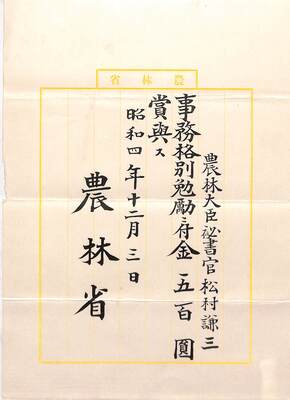 省林農
農林大臣秘書官 松村謙三
事務格別勉勵ニ付金五百圓
賞與ス
昭和四年十二月三日
農林省